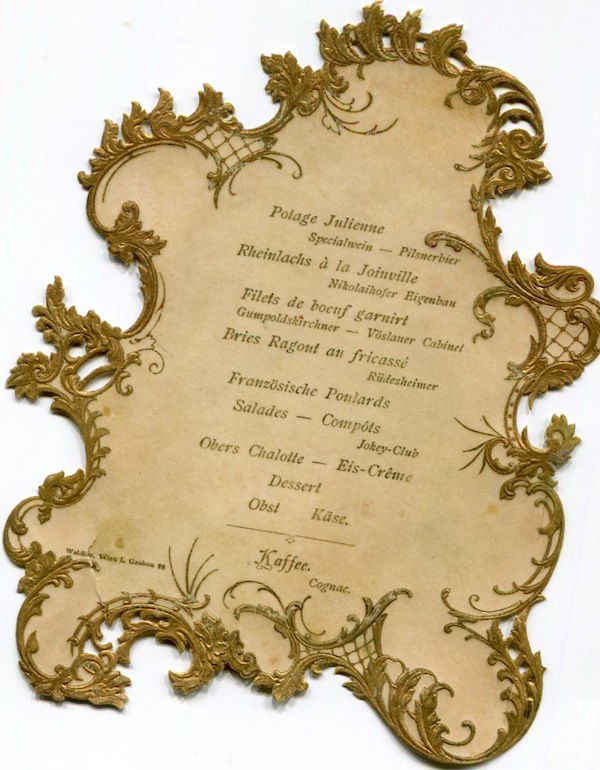 Potage Julienne
Specialwein — Pilsnerbier
Rheinlachs à la Joinville
Nikolaihofer Eigenbau
Filets de boeuf garnirt
Gumpoldskirchner — Vöslauer Cabinet
Bries Ragout au fricassé
Rüdesheimer
Französische Poulards
Salades — Compôts
Jokey-Club
Obers Chalotte — Eis-Crême
Dessert
Obst Käse.
Kaffee.
Cognac.
Wien I. Graben